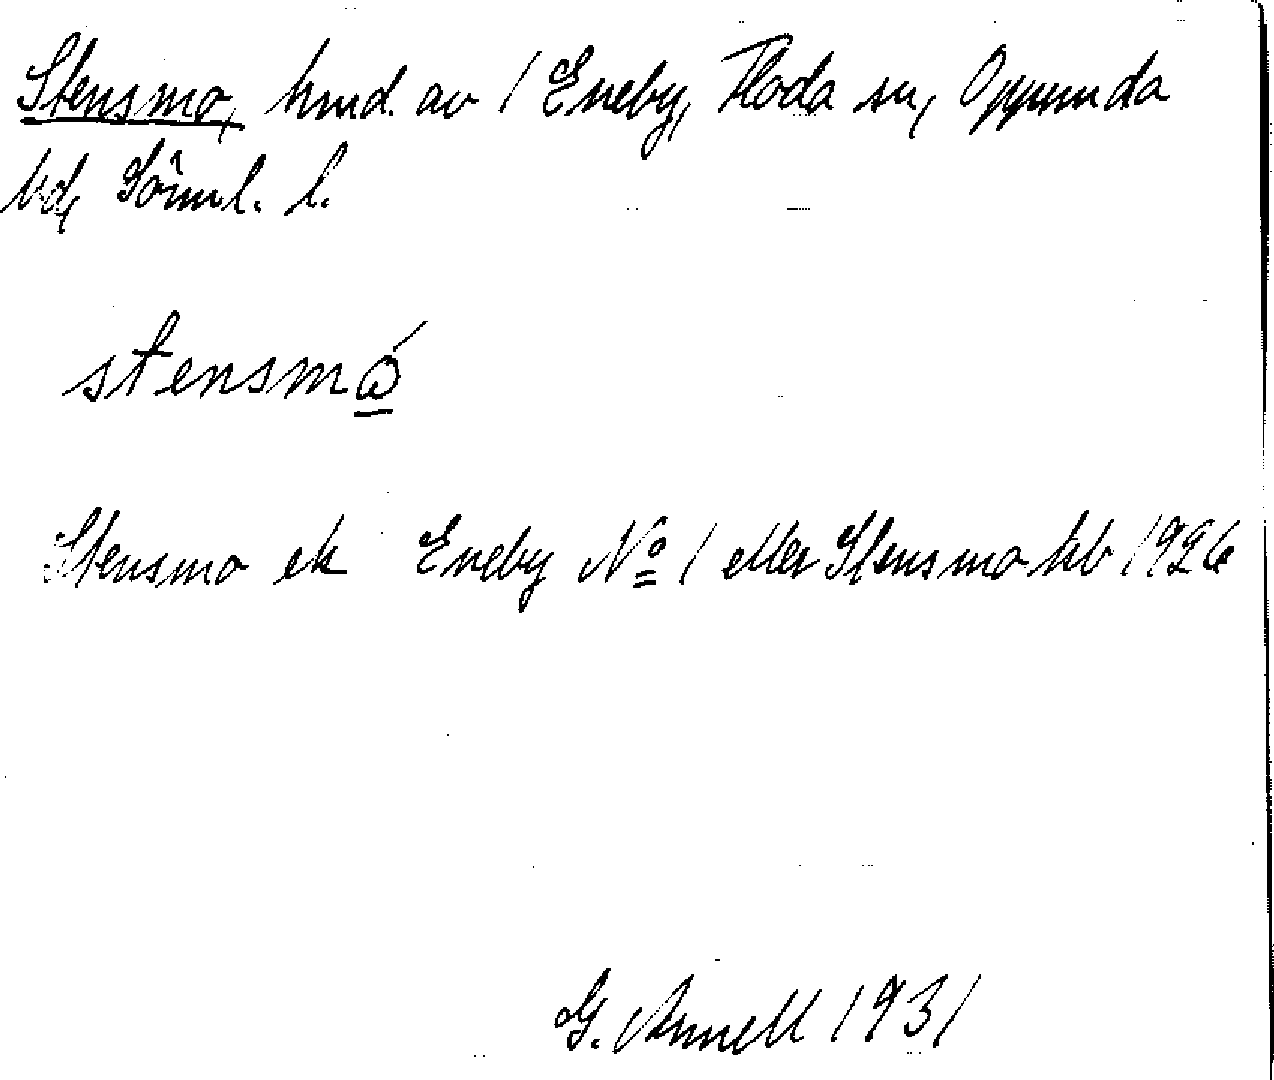 Stensmo, hmd. av 1 Eneby, Floda sn, Oppunda
hd, Söml. l.
stensmó̲
Stensmo ek Eneby Nº 1 eller Stensmo kb 1926
G. Annell 1931